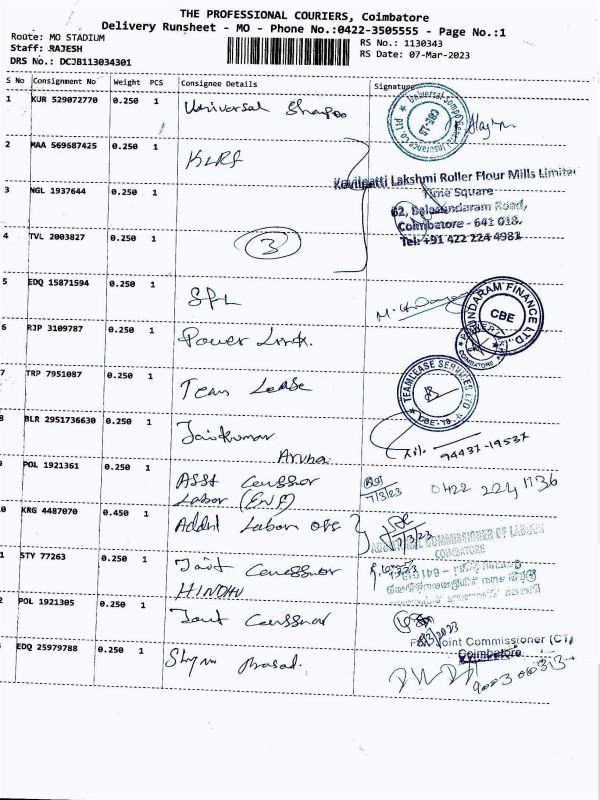 THE PROFESSIONAL COURIERS, Coimbatore
Delivery Runsheet - MO - Phone No.:0422-3505555 - Page No.:1
Route: MO STADIUM
Staff: RAJESH
DRS No.: DCJB113034301
RS No.: 1130343
RS Date: 07-Mar-2023
S No Consignment No Weight PCS Consignee Details Signature
1 KUR 529072770 0.250 1 Universal Shampo
Universal Sompo General Insurance Co. Pvt
CBE-18
2 MAA 569687425 0.250 1 KLRF
Kovilpatti Lakshmi Roller Flour Mills Limited
Time Square
62, Balasundaram Road,
Coimbatore - 641 018.
Tel: +91 422 224 4981
3 NGL 1937644 0.250 1
4 TVL 2003827 0.250 1
3
5 EDQ 15871594 0.250 1 SPL
SUNDARAM FINANCE LTD.
CBE
6 RJP 3109787 0.250 1 Power Link.
7 TRP 7951087 0.250 1 Team Lease
TEAMLEASE SERVICES LTD
CBE-18
8 BLR 2951736630 0.250 1 Jaikumar
Aruba
94437-19537
9 POL 1921361 0.250 1 Asst
Labor (ENF)
7/3/23
0422 224 1136
0 KRG 4487070 0.450 1 Addnl Labour off
7/3/23
COMMISSIONER OF LABOUR
COIMBATORE
1 STY 77263 0.250 1 Joint
HINDHU
2 POL 1921305 0.250 1 Joint
8/3/2023
Joint Commissioner (CT)
Coimbatore
EDQ 25979788 0.250 1 Shyam Prasad.